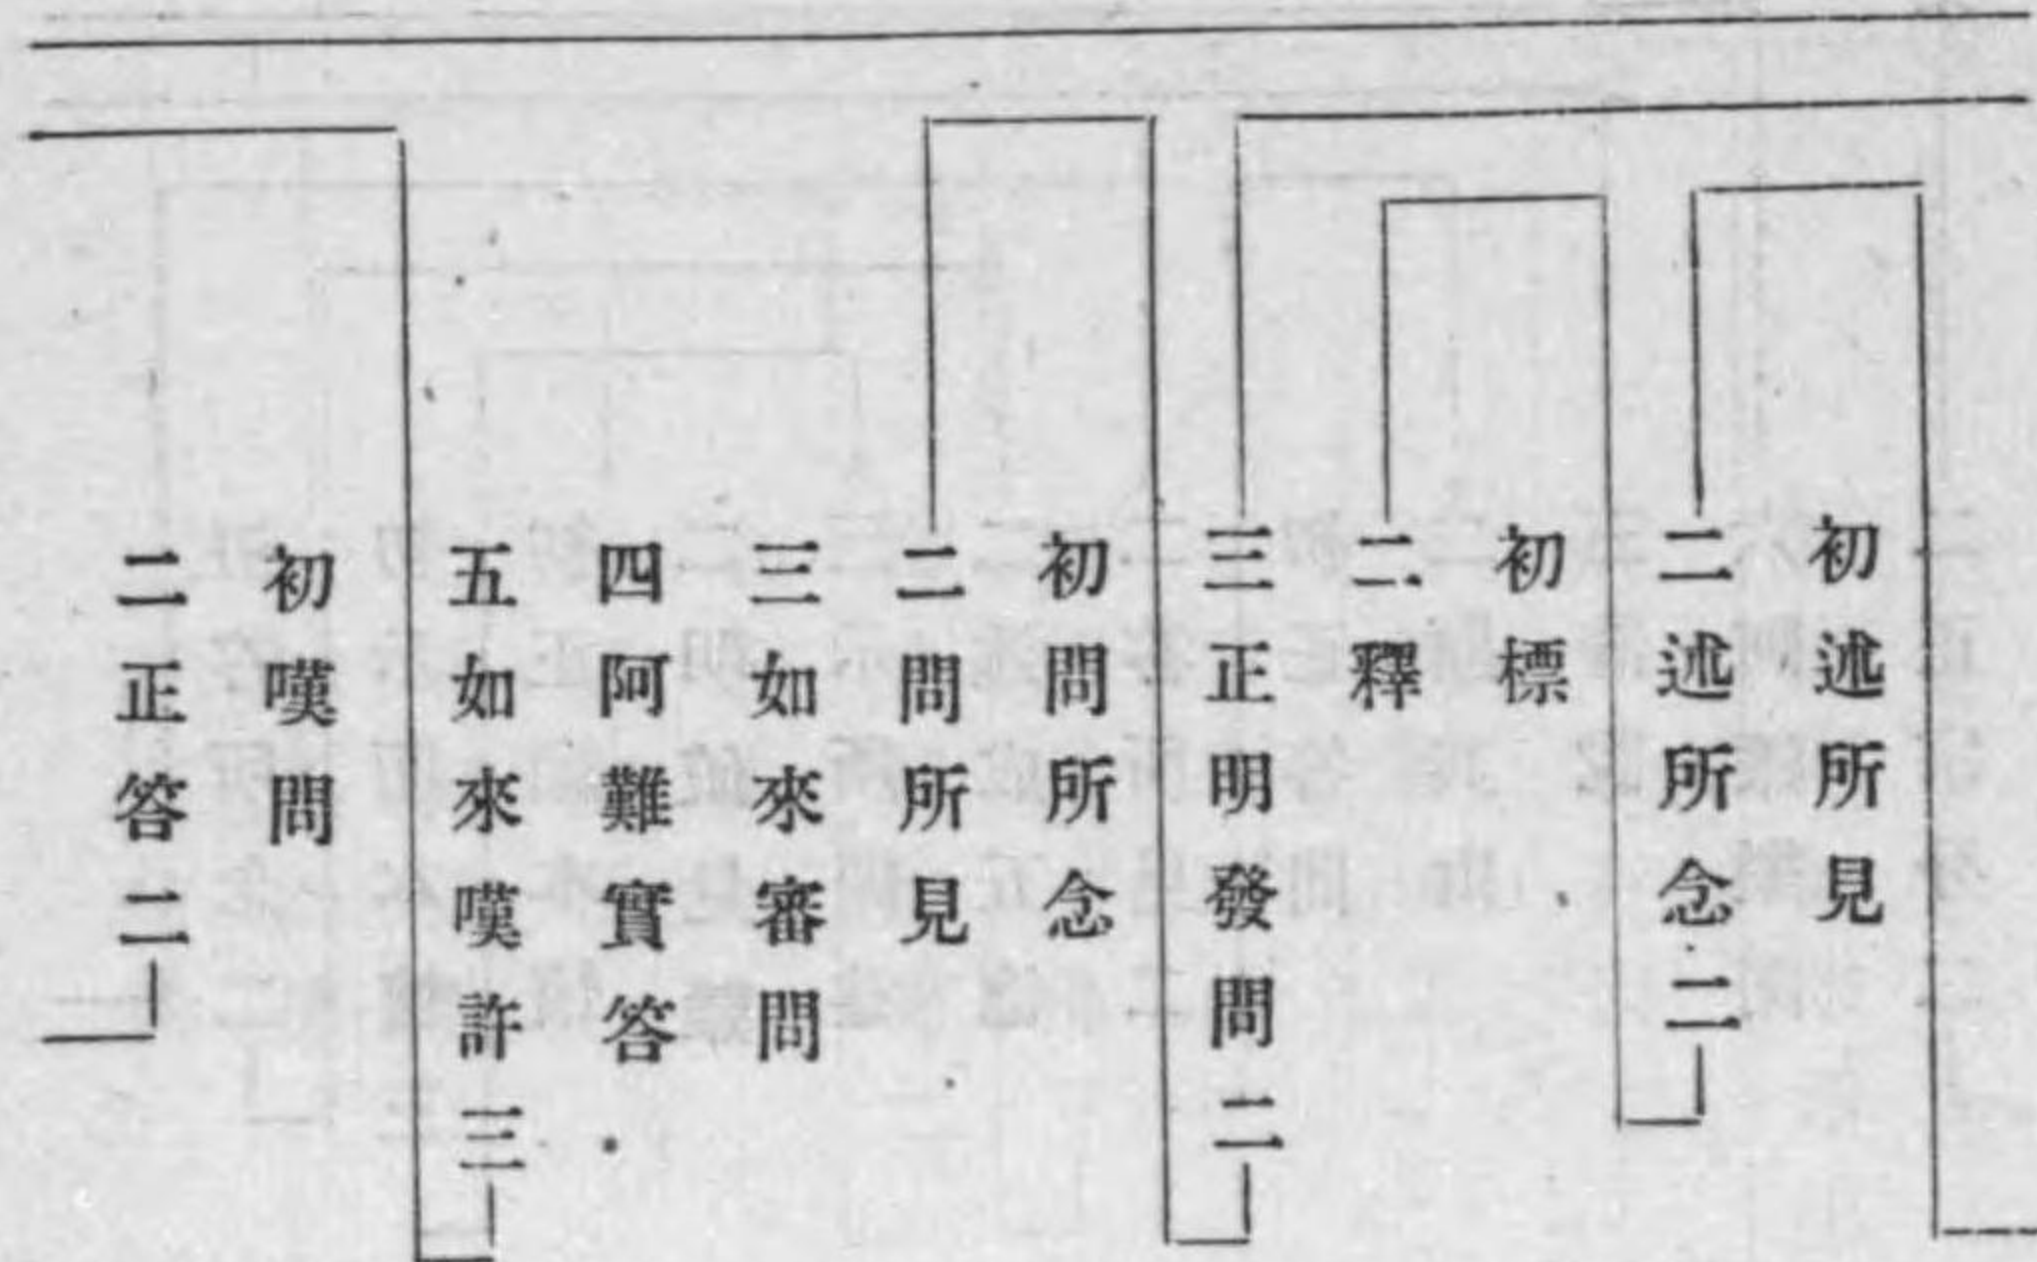 初述所見
二述所念二
初標
二釋
三正明發問二
初問所念
二問所見
三如來審問
四阿難實答
五如來嘆許三
初嘆問
二正答二